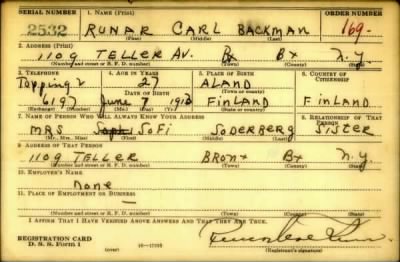 SERIAL NUMBER 1. NAME (Print) ORDER NUMBER
2532 RUNAR CARL BACKMAN 169-
(First) (Middle) (Last)
2. ADDRESS (Print)
1109 TELLER AV. Bx Bx N.Y.
(Number and street or R. F. D. number) (Town) (County) (State)
3. TELEPHONE 4. AGE IN YEARS 5. PLACE OF BIRTH 6. COUNTRY OF CITIZENSHIP
Topping 2 27 ALAND
DATE OF BIRTH (Town or county)
6197 June 7 1913 FINLAND FINLAND
(Exchange) (Number) (Mo.) (Day) (Yr.) (State or country)
7. NAME OF PERSON WHO WILL ALWAYS KNOW YOUR ADDRESS 8. RELATIONSHIP OF THAT PERSON
MRS SOFI SODERBERG SISTER
(Mr., Mrs., Miss) (First) (Middle) (Last)
9. ADDRESS OF THAT PERSON
1109 TELLER BRONX Bx N.Y.
(Number and street or R. F. D. number) (Town) (County) (State)
10. EMPLOYER'S NAME
None
11. PLACE OF EMPLOYMENT OR BUSINESS
(Number and street or R. F. D. number) (Town) (County) (State)
I AFFIRM THAT I HAVE VERIFIED ABOVE ANSWERS AND THAT THEY ARE TRUE.
REGISTRATION CARD
D. S. S. Form 1 (over)
(Registrant's signature)